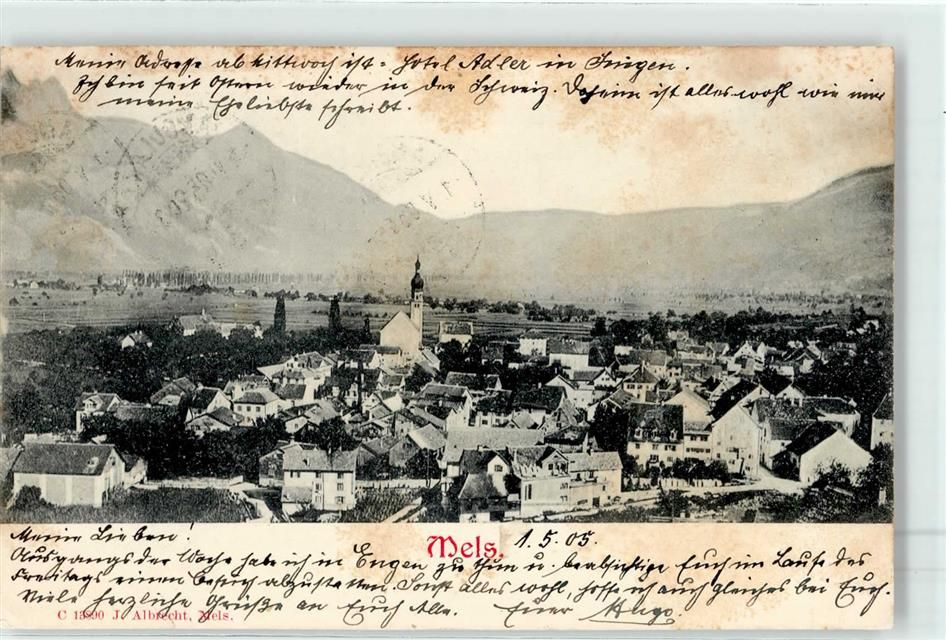 Meine Adresse ab Mittwoch ist: Hotel Adler in
Ich bin seit Ostern wieder in der Schweiz. Daheim ist alles wohl wie mir
meine Eheliebste schreibt.
Meine Lieben!
Mels. 1.5.05.
Ausgangs der Woche habe ich in Engen zu thun u. beabsichtige Euch im Laufe des
Freitags einen Besuch abzustatten. Sonst alles wohl, hoffe ich auch gleiches bei Euch.
Viele herzliche Grüße an Euch Alle. Euer Hugo.
C 13890 J. Albrecht, Mels.